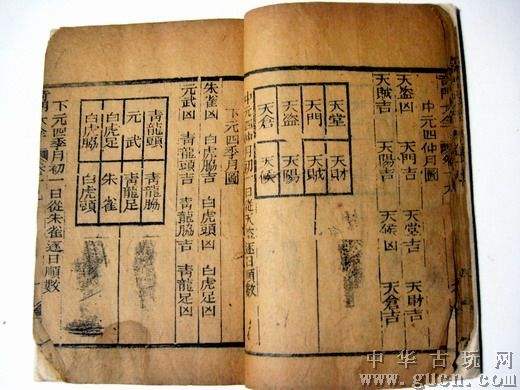 中元四仲月圖
天盜凶 天門吉 天堂吉 天財吉
天賊凶 天陽吉 天候凶 天倉吉
天堂 天門 天盜 天倉
天財 天賊 天陽 天候
中元四仲月初一日從天盜逐日順數
下元四季月圖
朱雀凶 白虎頭凶 白虎脇吉 白虎足凶
元武凶 青龍頭吉 青龍脇吉 青龍足凶
青龍頭 元武 白虎足 白虎脇
青龍脇 青龍足 朱雀 白虎頭
下元四季月初一日從朱雀逐日順數
中华古玩网
www.gucn.com